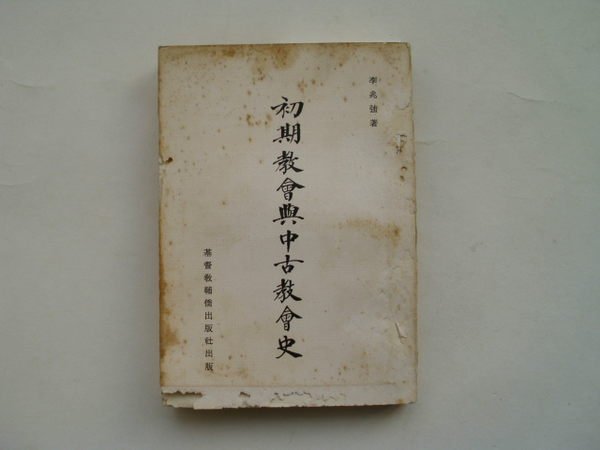 李兆強著
初期教會與中古教會史
基督教輔僑出版社出版